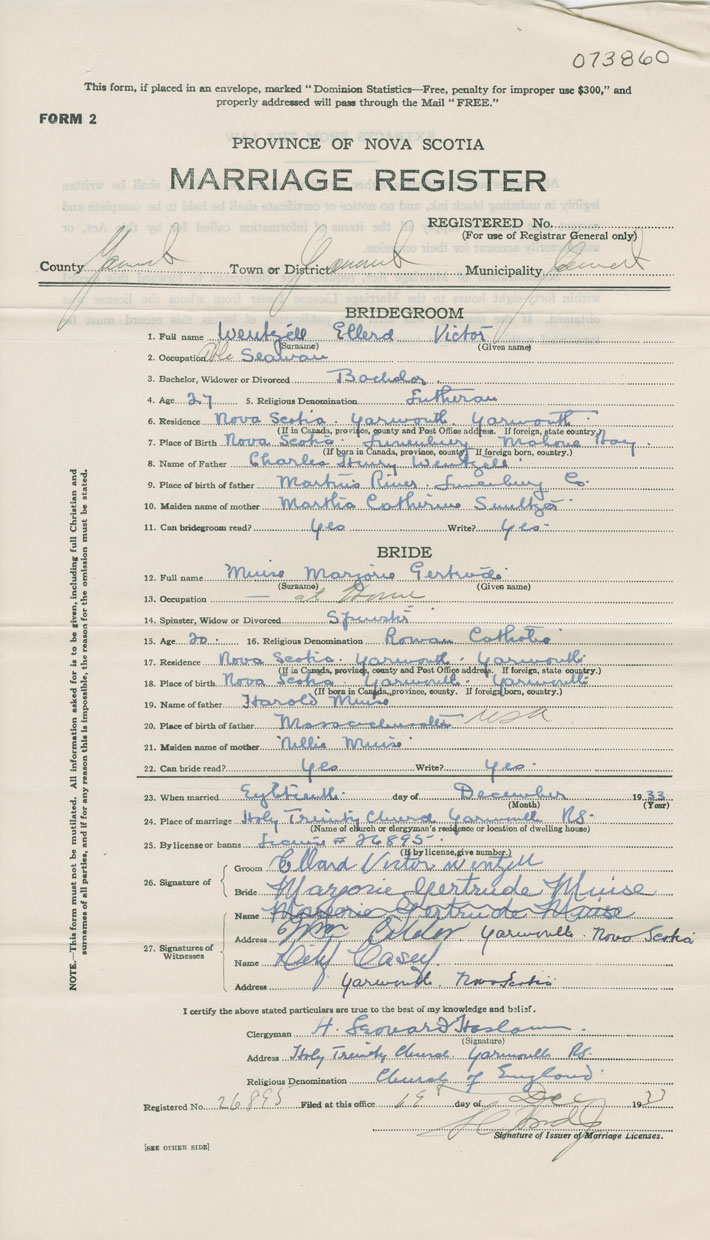 073860
This form, if placed in an envelope, marked "Dominion Statistics—Free, penalty for improper use $300," and
properly addressed will pass through the Mail "FREE."
FORM 2
PROVINCE OF NOVA SCOTIA
MARRIAGE REGISTER
REGISTERED No.
(For use of Registrar General only)
County Yarmouth Town or District Yarmouth Municipality Yarmouth
BRIDEGROOM
1. Full name Wentzell Ellerd Victor
(Surname) (Given name)
2. Occupation Able Seaman
3. Bachelor, Widower or Divorced Bachelor
4. Age 27 5. Religious Denomination Lutheran
6. Residence Nova Scotia. Yarmouth. Yarmouth.
(If in Canada, province, county and Post Office address. If foreign, state country.)
7. Place of Birth Nova Scotia. Lunenburg Mahone Bay.
(If born in Canada, province, county. If foreign born, country.)
8. Name of Father Charles Henry Wentzell
9. Place of birth of father Martins River. Lunenburg Co.
10. Maiden name of mother Martha Catherine
11. Can bridegroom read? Yes Write? Yes.
BRIDE
12. Full name Muise Marjorie Gertrude
(Surname) (Given name)
13. Occupation — at Home
14. Spinster, Widow or Divorced Spinster
15. Age 20. 16. Religious Denomination Roman Catholic
17. Residence Nova Scotia. Yarmouth. Yarmouth.
(If in Canada, province, county and Post Office address. If foreign, state country.)
18. Place of birth Nova Scotia. Yarmouth. Yarmouth.
(If born in Canada, province, county. If foreign born, country.)
19. Name of father Harold Muise
20. Place of birth of father Massachusetts USA
21. Maiden name of mother Nellie Muise
22. Can bride read? Yes Write? Yes.
23. When married Eighteenth day of December 1933
(Month) (Year)
24. Place of marriage Holy Trinity Church Yarmouth NS.
(Name of church or clergyman's residence or location of dwelling house)
25. By license or banns License # 26895.
(If by license, give number.)
26. Signature of
Groom Ellard Victor Wentzell
Bride Marjorie Gertrude Muise
27. Signatures of Witnesses
Name Marjorie Gertrude Muise
Address Yarmouth. Nova Scotia
Name Casey
Address Yarmouth. Nova Scotia
I certify the above stated particulars are true to the best of my knowledge and belief.
Clergyman H. Leonard Haslam
(Signature)
Address Holy Trinity Church. Yarmouth NS.
Religious Denomination Church of England.
Registered No. 26895 Filed at this office 19 day of Dec 1933
Signature of Issuer of Marriage Licenses.
[SEE OTHER SIDE]
NOTE.—This form must not be mutilated. All information asked for is to be given, including full Christian and
surnames of all parties, and if for any reason this is impossible, the reason for the omission must be stated.